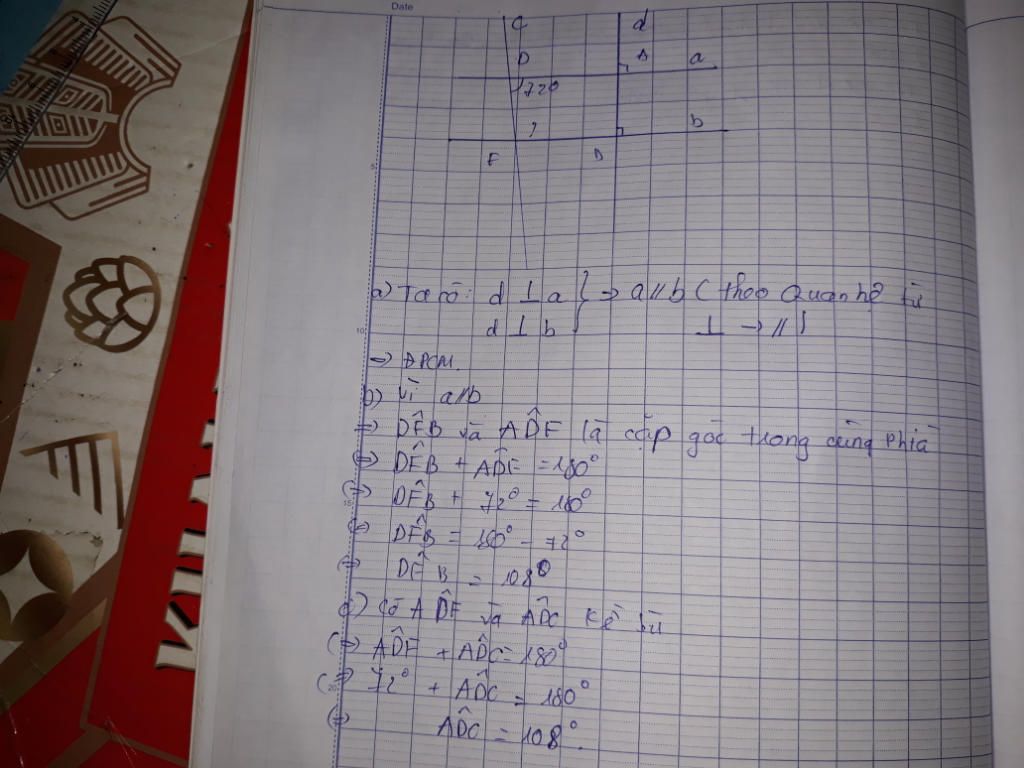 Date
C d
D A a
72°
1 b
F D
5
a) Ta có: d ⊥ a } ⇒ a // b ( theo Quan hệ từ
10
d ⊥ b ⊥ → // )
⇒ ĐPCM.
b) Vì a//b
⇒ DF̂B và AD̂F là cặp góc trong cùng phía
⇒ DF̂B + AD̂F = 180°
15
⇔ DF̂B + 72° = 180°
⇔ DF̂B = 180° - 72°
⇔ DF̂B = 108°
c) Có AD̂F và AD̂C kề bù
⇔ AD̂F + AD̂C = 180°
20
⇔ 72° + AD̂C = 180°
⇔ AD̂C = 108°.